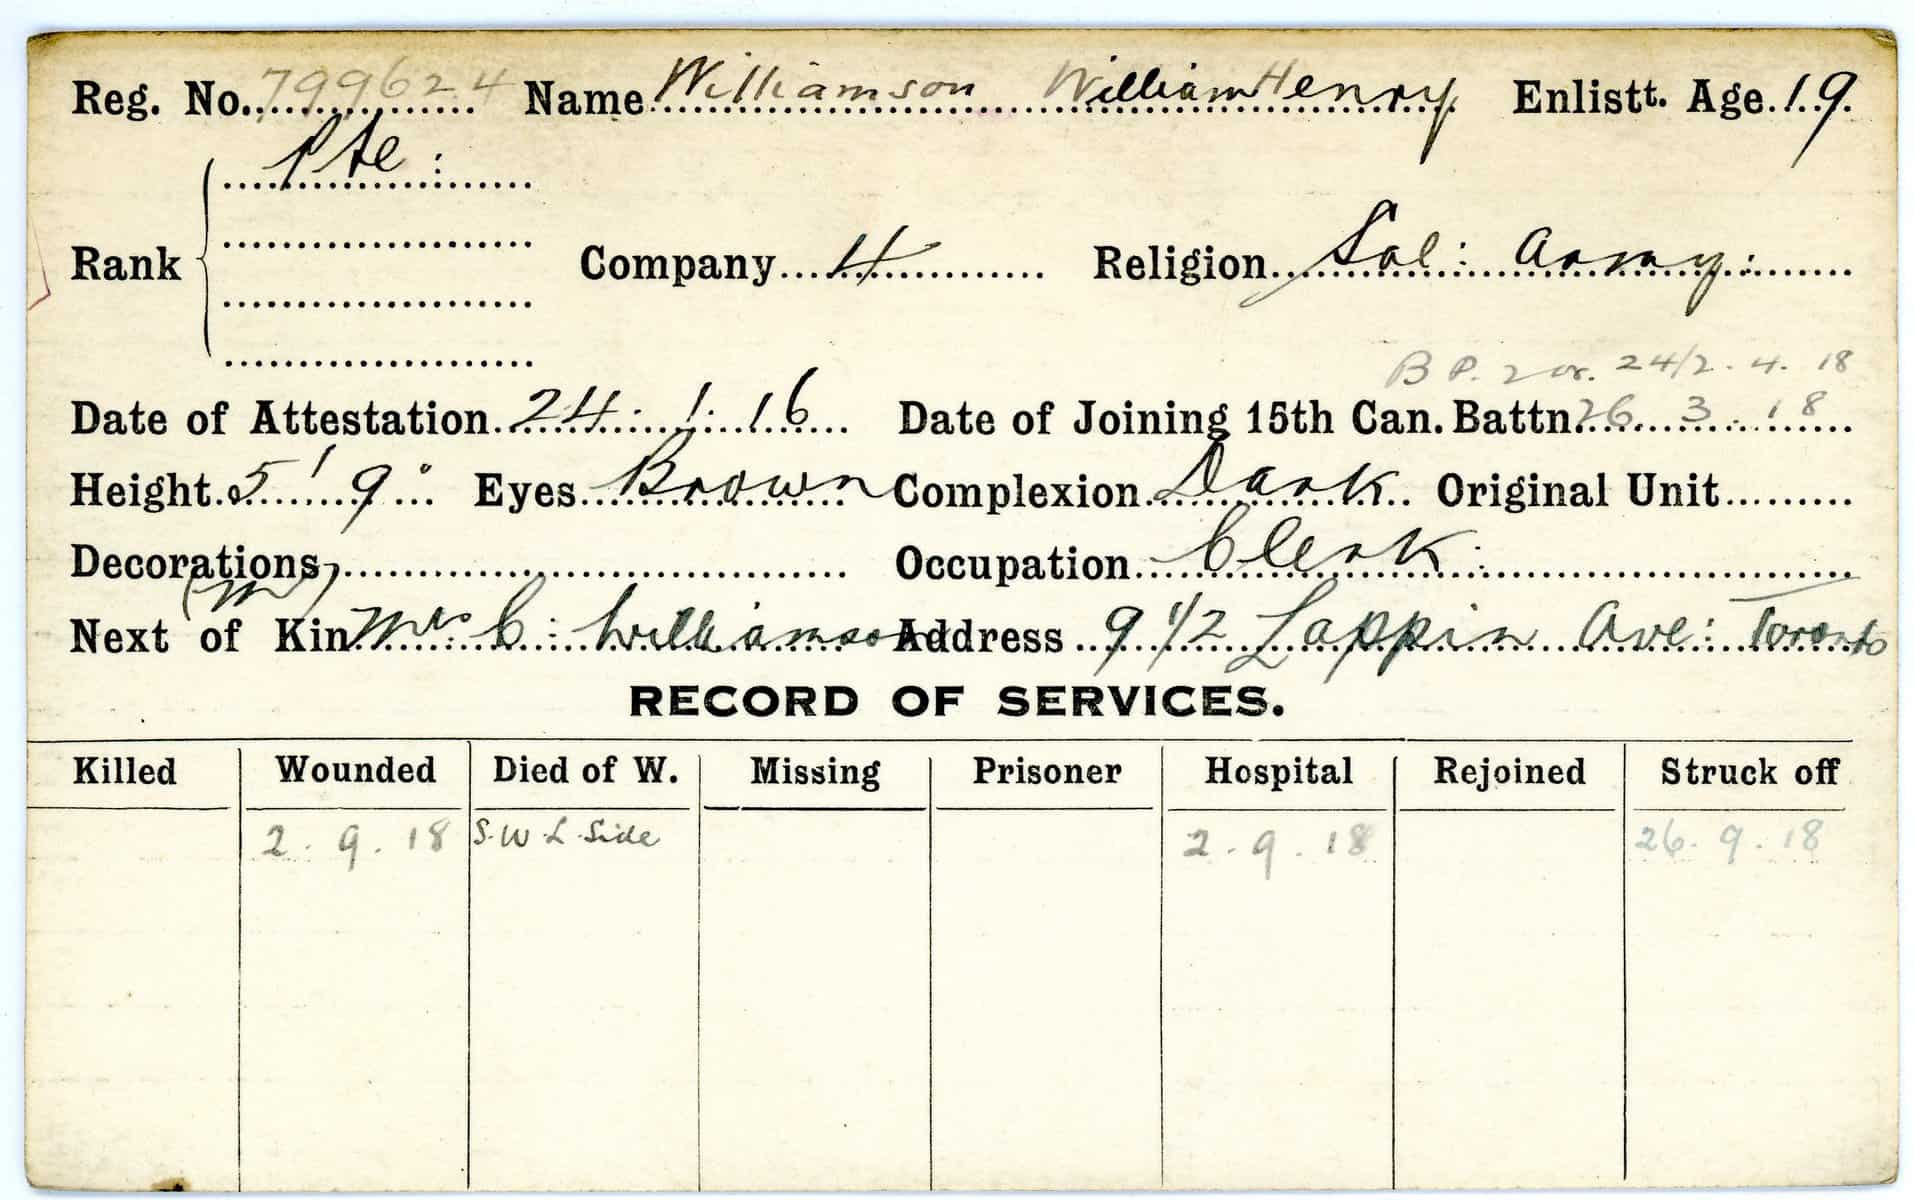 Reg. No. 799624 Name Williamson William Henry Enlistt. Age. 19.
Pte:
Rank Company 4 Religion Sal: Army:
B P. 2 or. 24/2. 4. 18
Date of Attestation 24. 1. 16 Date of Joining 15th Can. Battn. 26. 3. 18
Height 5' 9" Eyes Brown Complexion Dark Original Unit
Decorations Occupation Clerk:
(M)
Next of Kin Mrs C: Williamson Address 9 1/2 Lappin Ave: Toronto
RECORD OF SERVICES.
Killed Wounded Died of W. Missing Prisoner Hospital Rejoined Struck off
2. 9. 18 S. W. L. Side 2. 9. 18 26. 9. 18